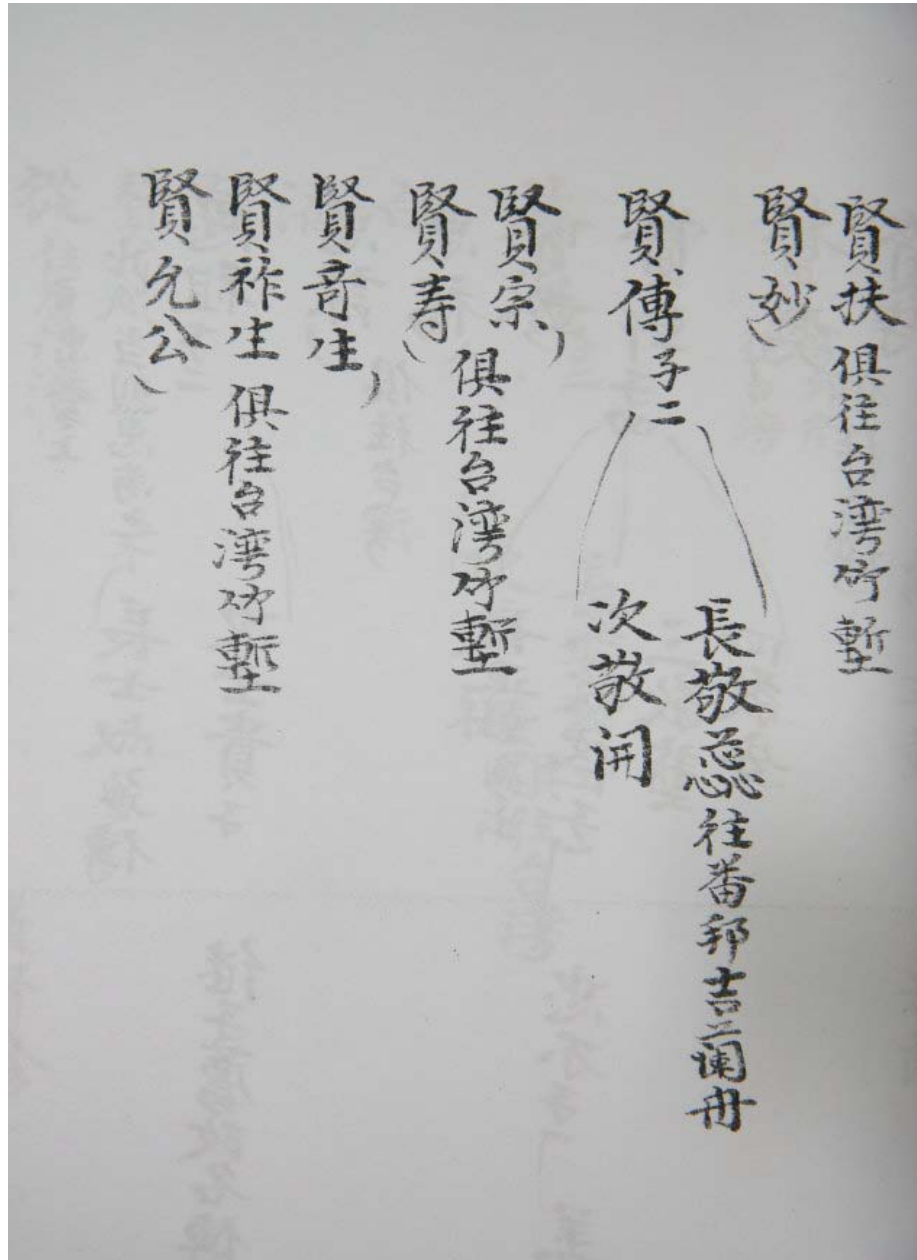 賢扶
俱往台湾竹塹
賢妙
賢傳子二
長敬蕊往番邦吉蘭丹
次敬開
賢宗
俱往台湾竹塹
賢寿
賢奇生
賢祚生
俱往台湾竹塹
賢允公